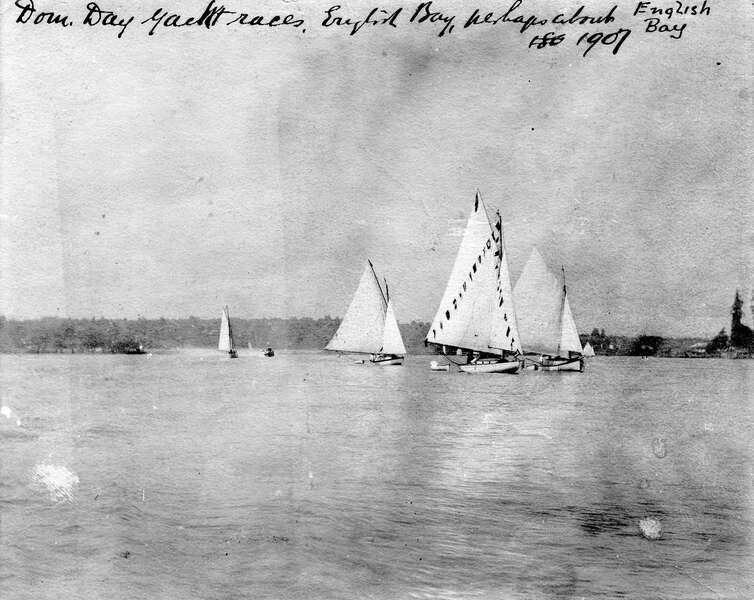 Dom. Day Yacht races. English Bay, perhaps about
180 1907
English
Bay